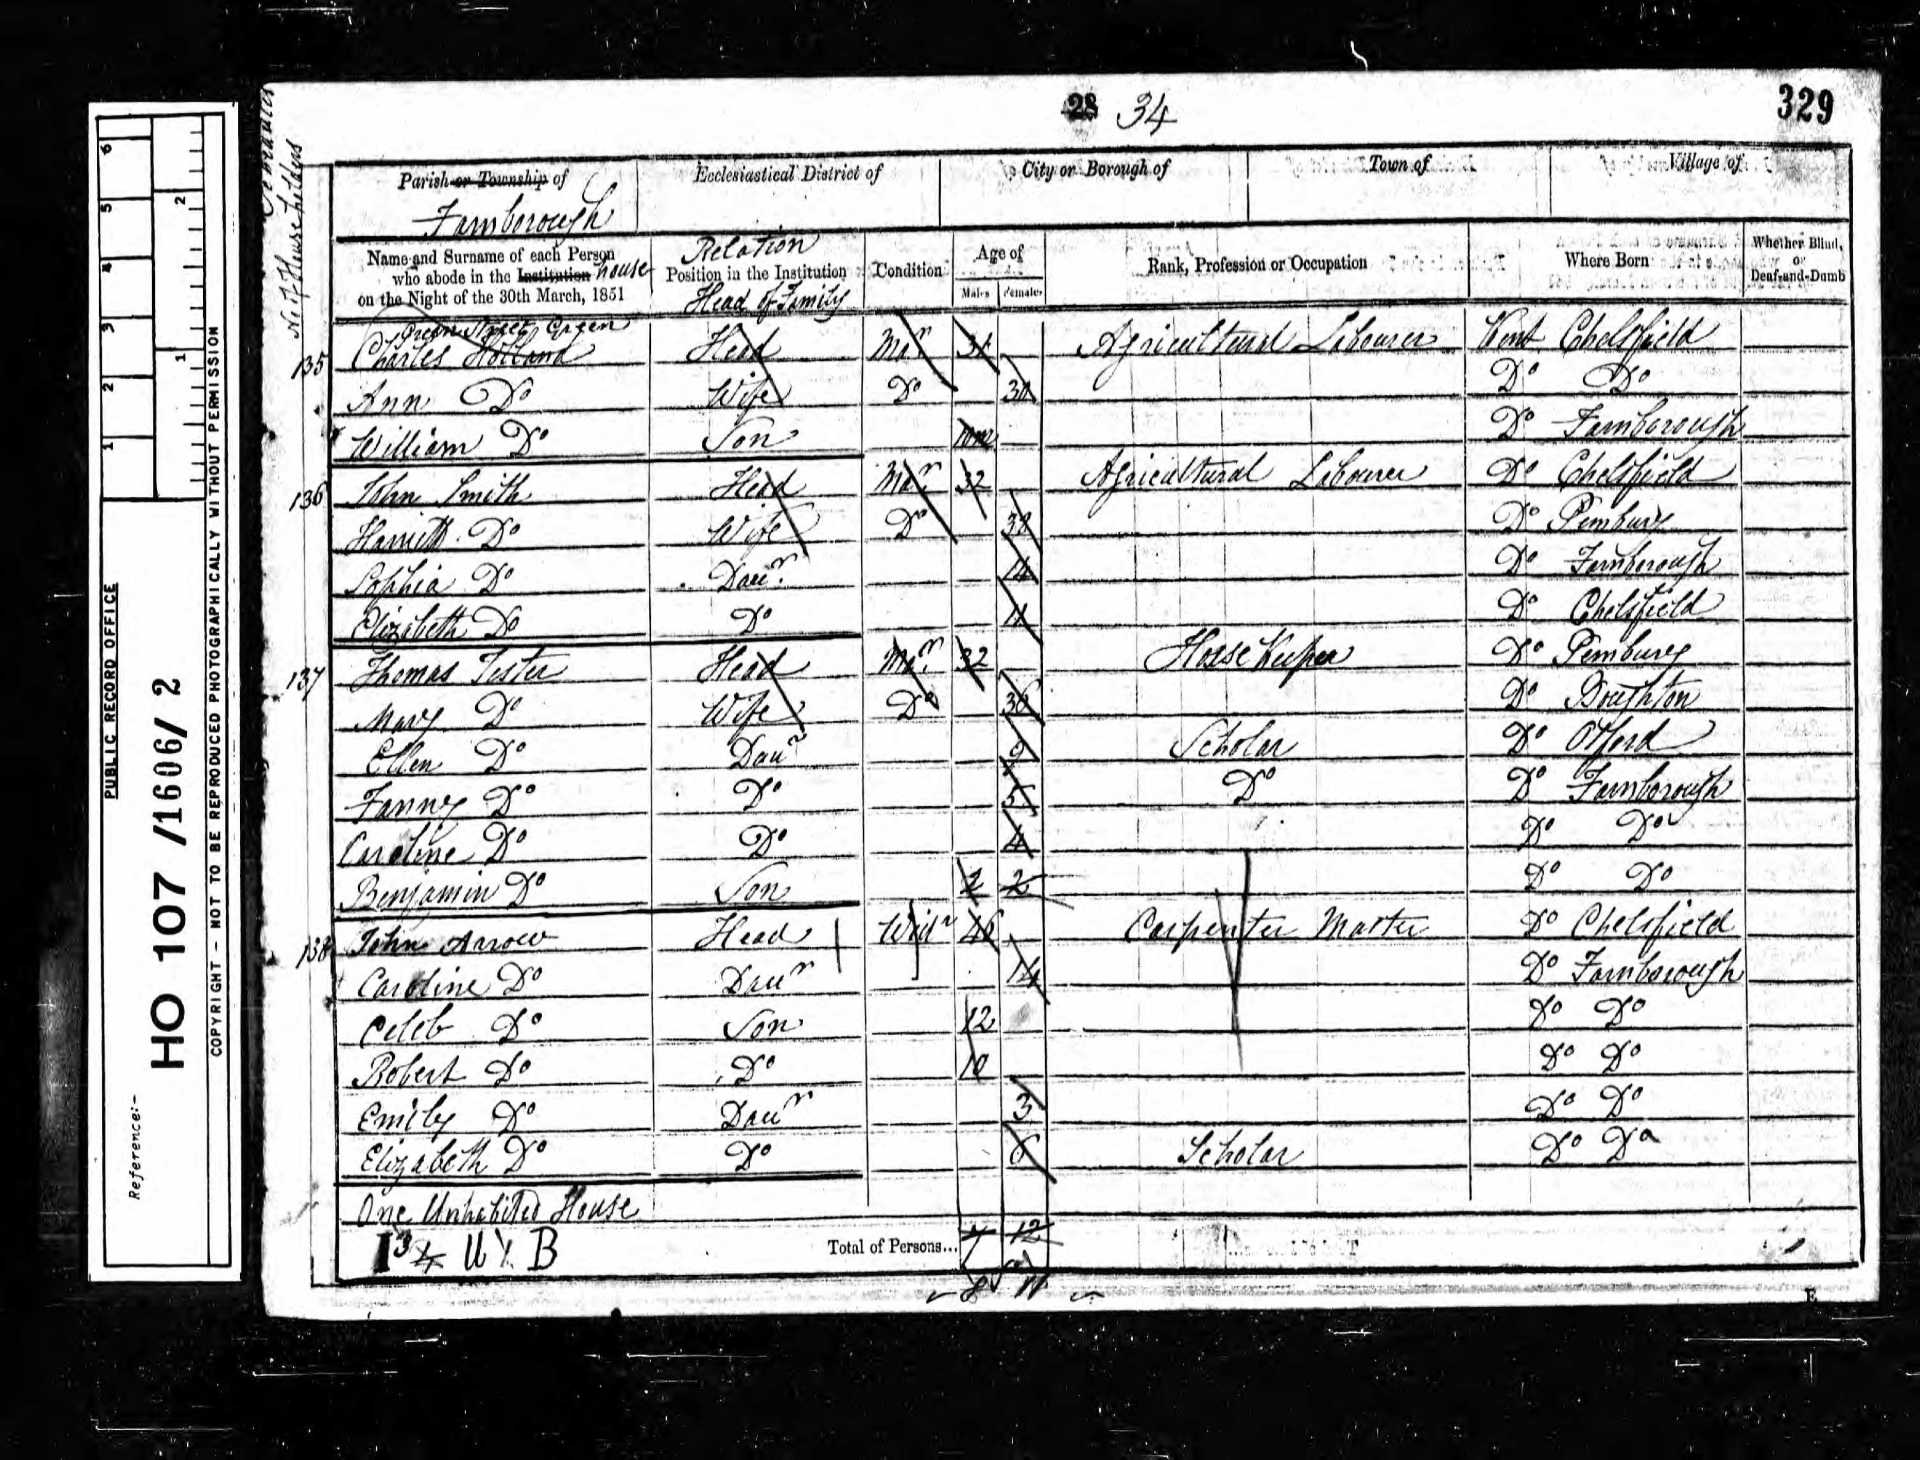 28 34
329
Parish or Township of
Ecclesiastical District of
City or Borough of
Town of
Village of
Farnborough
No of Householders
Name and Surname of each Person who abode in the Institution house on the Night of the 30th March, 1851
Relation
Position in the Institution
Head of Family
Condition
Age of
Males Females
Rank, Profession or Occupation
Where Born
Whether Blind, or Deaf-and-Dumb
Green Street Green
135 Charles Holland Head Mar 31 Agricultural Labourer Kent Chelsfield
Ann Do Wife Do 30 Do Do
William Do Son 10m Do Farnborough
136 John Smith Head Mar 32 Agricultural Labourer Do Chelsfield
Harriett Do Wife Do 38 Do Pembury
Sophia Do Daur 14 Do Farnborough
Elizabeth Do Do 11 Do Chelsfield
137 Thomas Tester Head Mar 32 Horse Keeper Do Pembury
Mary Do Wife Do 36 Do Boughton
Ellen Do Daur 9 Scholar Do Otford
Fanny Do Do 5 Do Do Farnborough
Caroline Do Do 4 Do Do
Benjamin Do Son 2 2 Do Do
138 John Arrow Head Widr 46 Carpenter Master Do Chelsfield
Caroline Do Daur 14 Do Farnborough
Celeb Do Son 12 Do Do
Robert Do Do 10 Do Do
Emily Do Daur 3 Do Do
Elizabeth Do Do 6 Scholar Do Do
One Unhabited House
I 3 4 U 1 B
Total of Persons... 7 12
8 11
E
PUBLIC RECORD OFFICE
Reference:-
HO 107 /1606/ 2
COPYRIGHT - NOT TO BE REPRODUCED PHOTOGRAPHICALLY WITHOUT PERMISSION
1 2 3 4 5 6
1 2